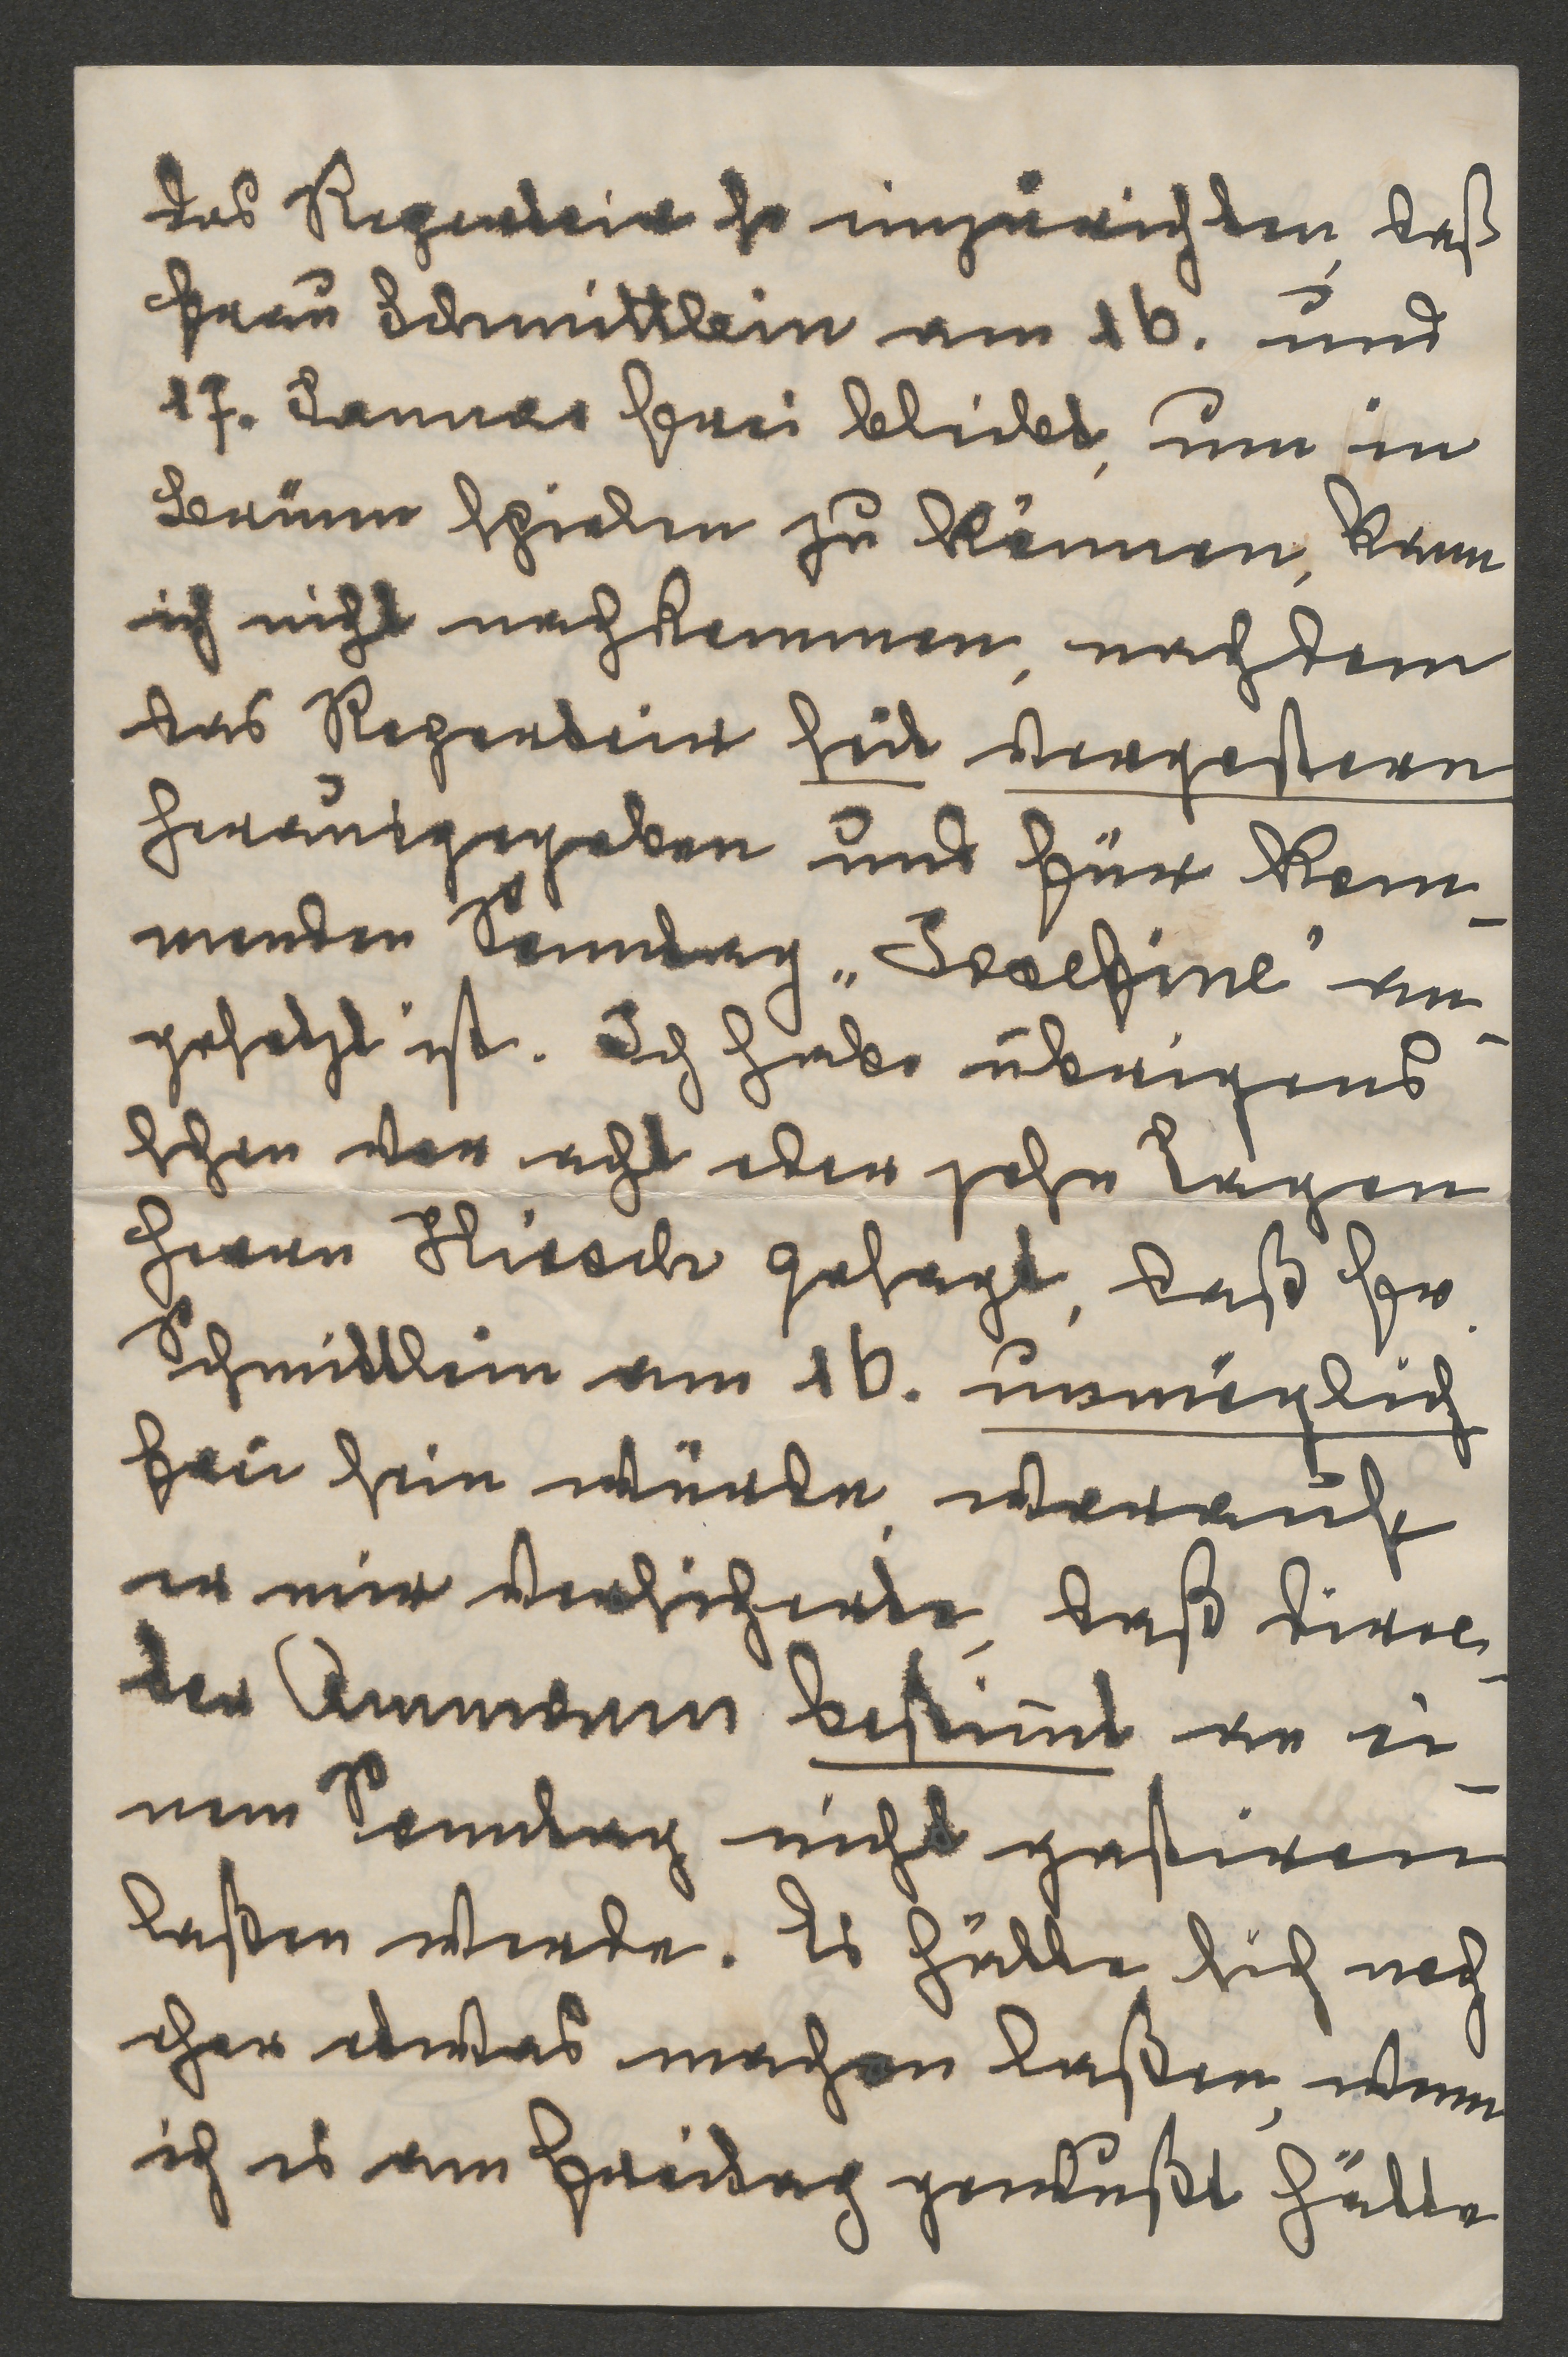 das Repertoir so einzurichten, daß
Frau Schmittlein am 16. und
17. Januar frei bleibt, um in
Brünn spielen zu können, kann
ich nicht nachkommen, nachdem
das Repertoir seit vorgestern
herausgegeben und für kom-
menden Sonntag „Josefine" an-
gesetzt ist. Ich habe übrigens
schon vor acht oder zehn Tagen
Herrn Hirsch gesagt, daß Fr.
Schmittlein am 16. unmöglich
frei sein würde, worauf
er mir versicherte, daß Direc-
tor Ammann bestimt an ei-
nem Sonntag nicht gastiren
laßen werde. Es hätte sich noch
eher etwas machen laßen, wenn
ich es am Freitag gewußt hätte